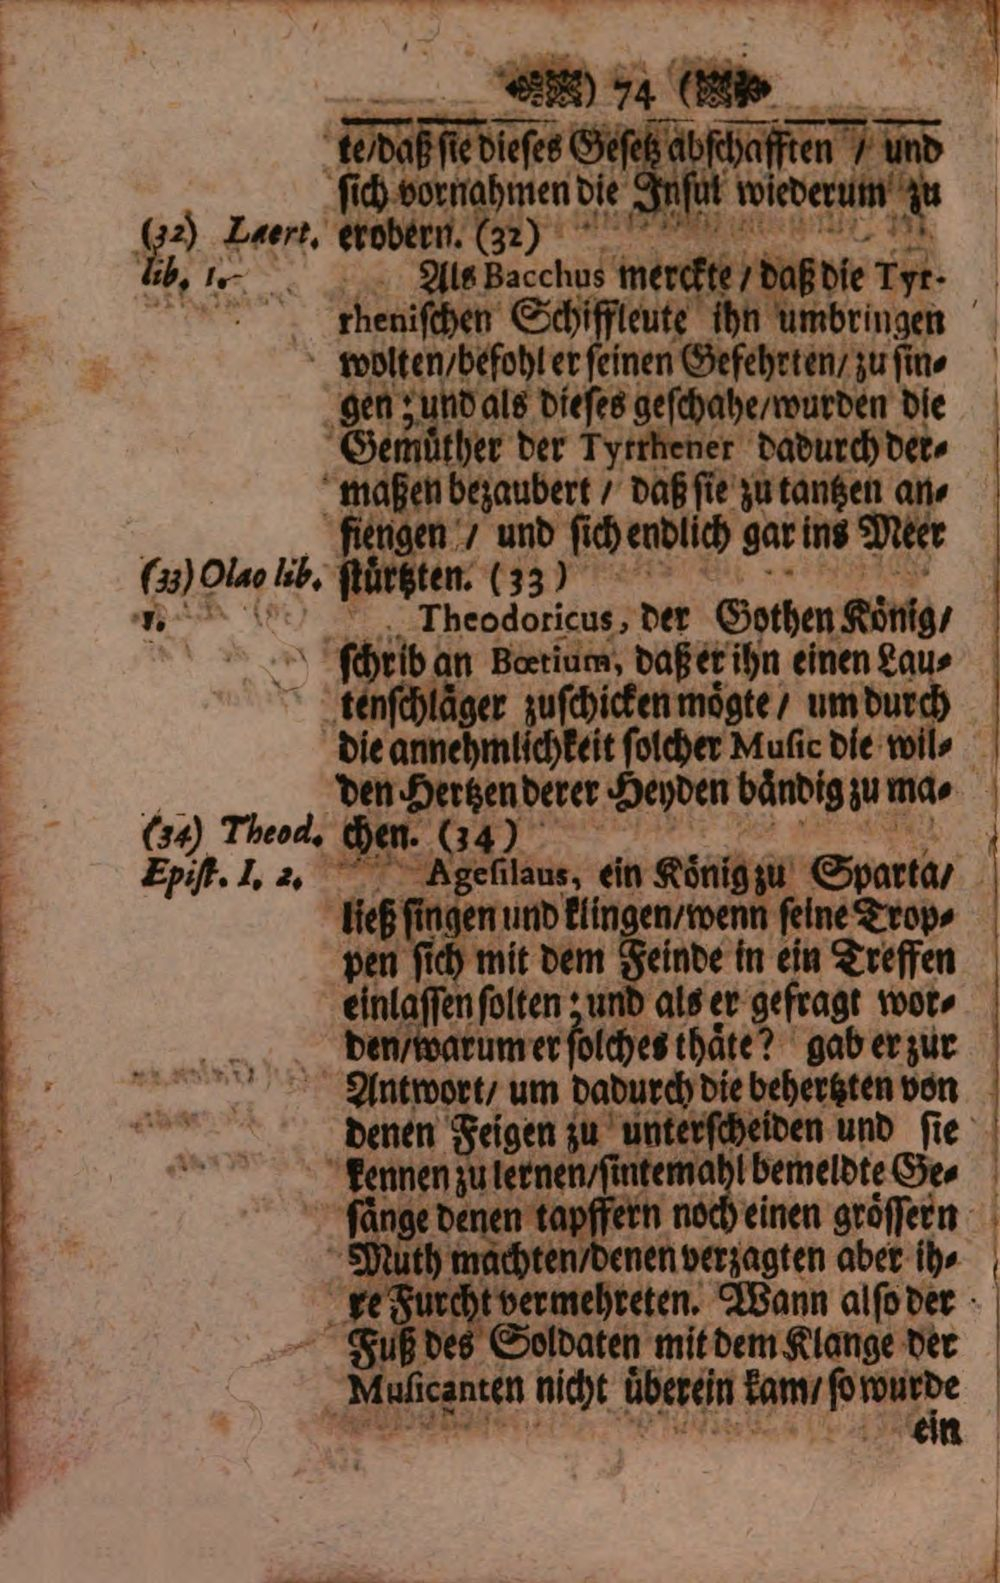 ) 74 (
te/daß ſie dieſes Geſetz abſchafften / und
ſich vornahmen die Inſul wiederum zu
erobern. (32)
(32) Laert.
lib. 1.
Als Bacchus merckte / daß die Tyr-
rheniſchen Schiffleute ihn umbringen
wolten/befohl er ſeinen Gefehrten/ zu ſin-
gen; und als dieſes geſchahe/wurden die
Gemuͤther der Tyrrhener dadurch der-
maßen bezaubert / daß ſie zu tantzen an-
fiengen / und ſich endlich gar ins Meer
ſtuͤrtzten. (33)
(33) Olao lib.
1.
Theodoricus, der Gothen Koͤnig/
ſchrib an Bœtium, daß er ihn einen Lau-
tenſchlaͤger zuſchicken moͤgte / um durch
die annehmlichkeit ſolcher Muſic die wil-
den Hertzen derer Heyden baͤndig zu ma-
chen. (34)
(34) Theod.
Epiſt. I. 2.
Ageſilaus, ein Koͤnig zu Sparta/
ließ ſingen und klingen/wenn ſeine Trop-
pen ſich mit dem Feinde in ein Treffen
einlaſſen ſolten; und als er gefragt wor-
den/warum er ſolches thaͤte? gab er zur
Antwort/ um dadurch die behertzten von
denen Feigen zu unterſcheiden und ſie
kennen zu lernen/ſintemahl bemeldte Ge-
ſaͤnge denen tapffern noch einen groͤſſern
Muth machten/denen verzagten aber ih-
re Furcht vermehreten. Wann alſo der
Fuß des Soldaten mit dem Klange der
Muſicanten nicht uͤberein kam/ ſo wurde
ein